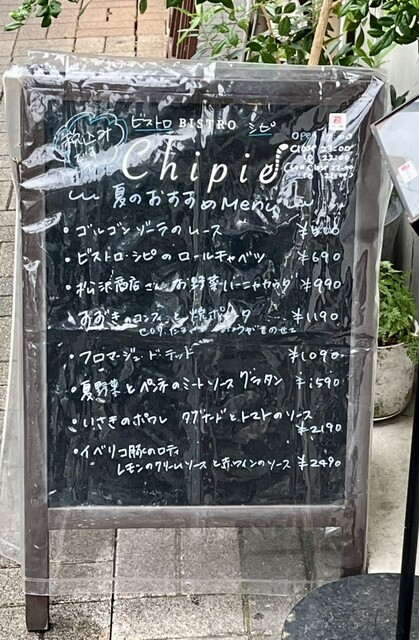 ビストロ BISTRO シピ
Chipie
夏のおすすめMenu
・ゴルゴンゾーラのムース
・ビストロ・シピのロールキャベツ ¥690
・松沢商店さんお野菜 バーニャカウダ ¥990
¥1190
・フロマージュ・ド・テッド ¥1090
・夏野菜とペンネのミートソースグラタン ¥1590
・いさきのポワレ タプナードとトマトのソース
¥2190
・イベリコ豚のロティ
レモンのクリームソースと赤ワインのソース ¥2490